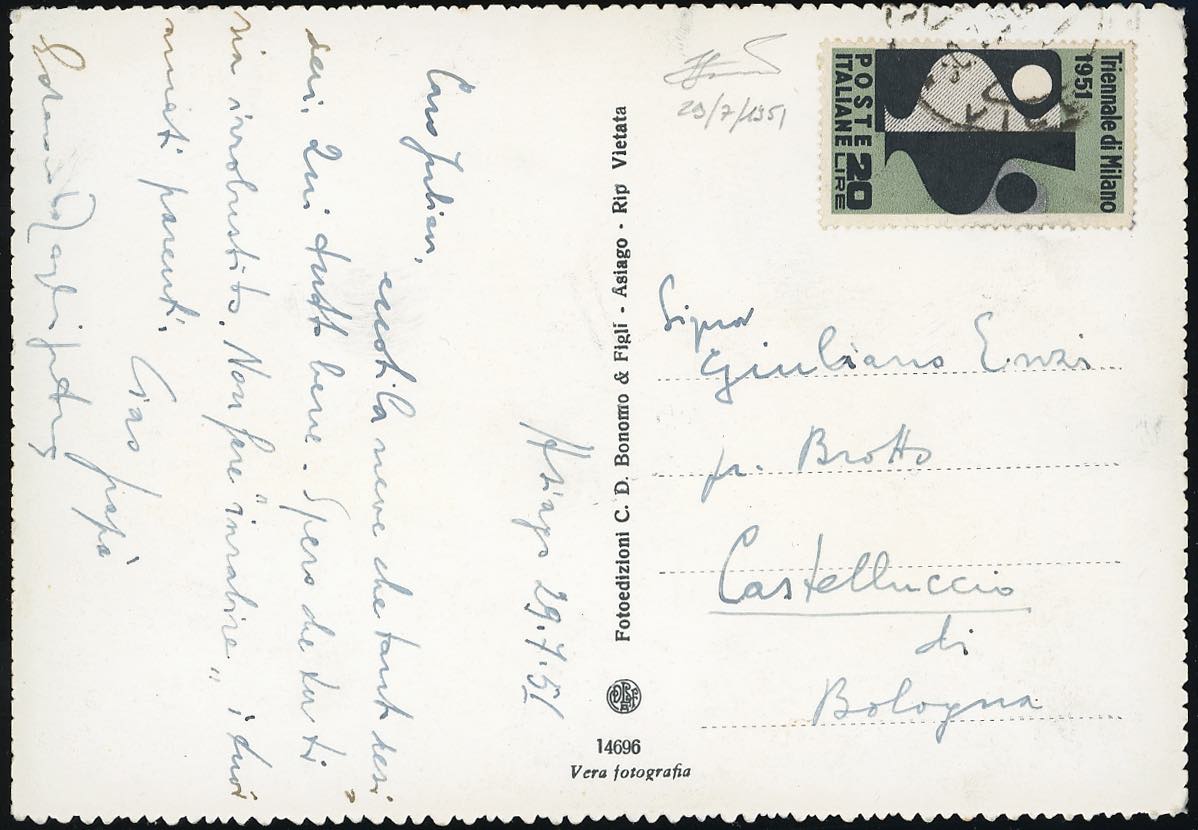 Asiago 29.7.51
Caro Julian,
eccoti la neve che tanto
desideri. Qui tutto bene. Spero che tu ti
sia irrobustito. Non fare "insabire" i tuoi
amati parenti.
Ciao papà
29/7/1951
Triennale di Milano
1951
POSTE
ITALIANE
LIRE 20
Fotoedizioni C. D. Bonomo & Figli - Asiago - Rip Vietata
14696
Vera fotografia
Signor
Giuliano Enzi
pr. Brotto
Castelluccio
di
Bologna